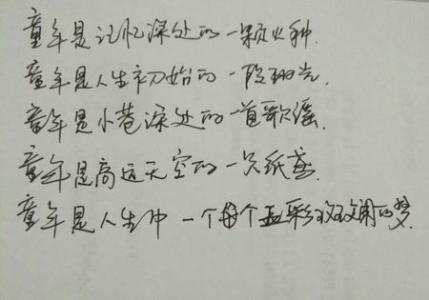 童年是记忆深处的一颗火种.
童年是人生初始的一段时光.
童年是小巷深处的一首歌谣.
童年是高远天空的一只纸鸢.
童年是人生中一个个五彩斑斓的梦.